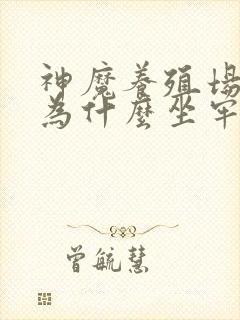 神魔养殖場
為什麼坐牢
曾毓慧